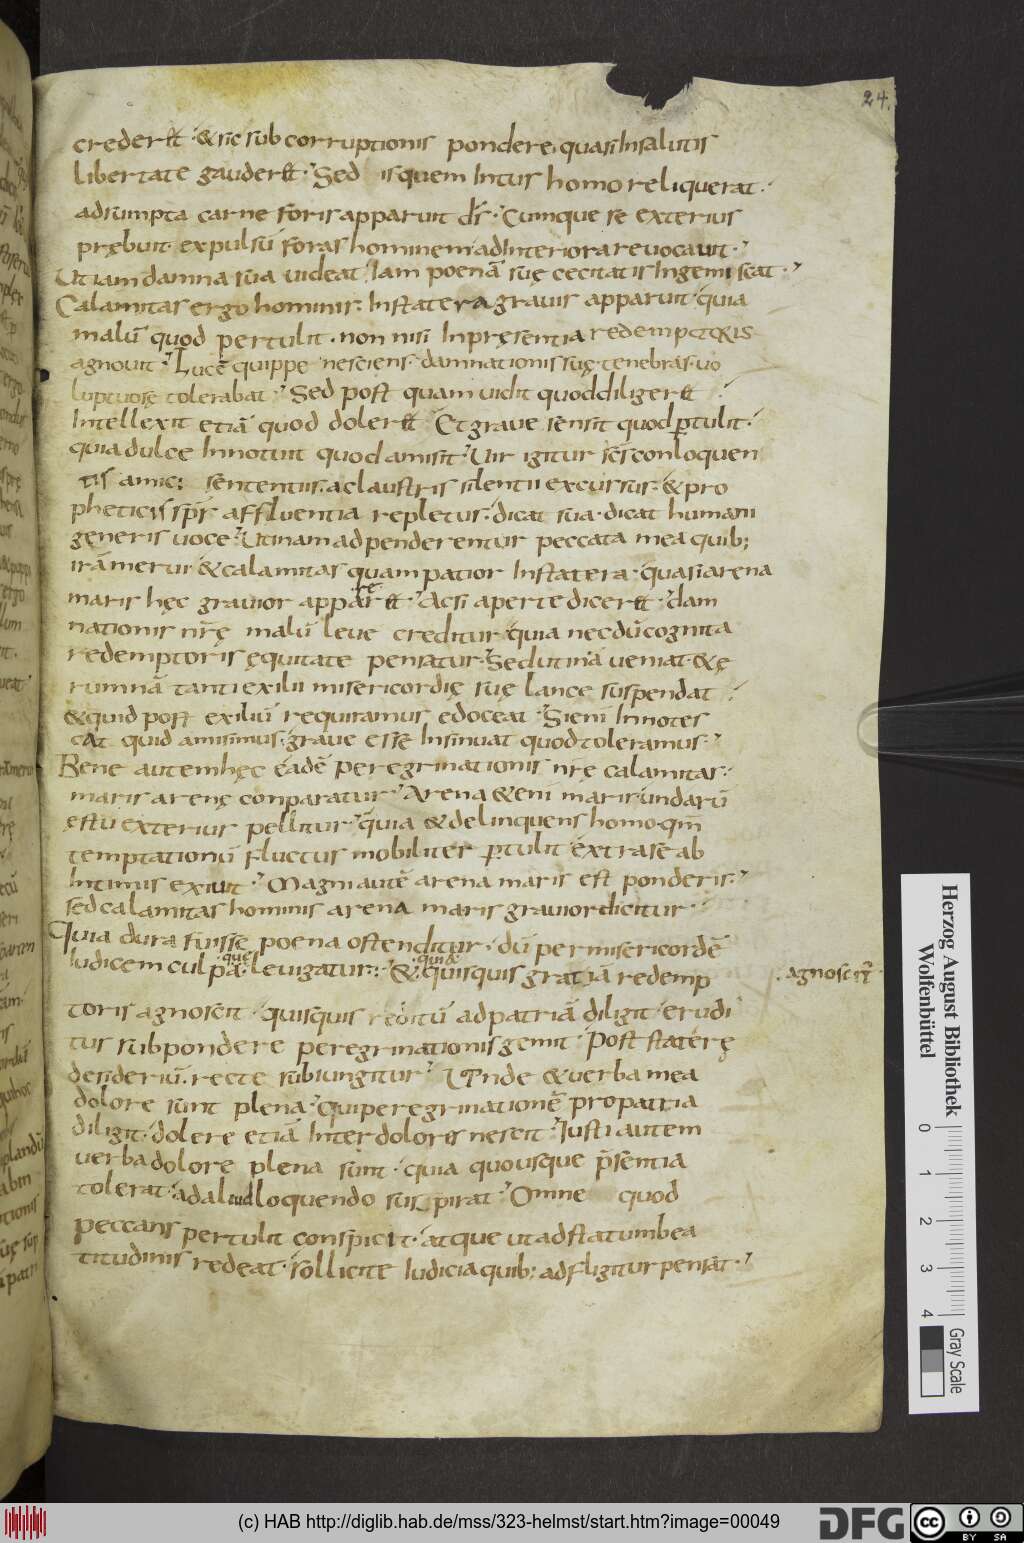 24.
crederet · & sic sub corruptionis pondere, quasi In salutis
libertate gauderet · Sed is quem Intus homo reliquerat ·
adsumpta carne foris apparuit d̄s · Cumque se exterius
prębuit · expulsū foras hominem ad Interiora reuocauit ·
Ut iam damna sua uideat · Iam poenā suę cecitatis Ingemiscat ·
Calamitas ergo hominis · In statera grauis apparuit · quia
malū quod pertulit · non nisi In pręsentia redemptoris
agnouit · Lucē quippe nesciens · damnationis suę tenebras uo
luptuosę tolerabat · Sed post quam uidit quod diligeret
Intellexit etiā quod doleret Et graue sensit quod ꝑtulit ·
quia dulce Innotuit quod amisit · Uir igitur sc̄s conloquen
tis amici sententiis · a claustris silentii excursus · & pro
pheticis sp̄s affluentia repletus · dicat sua · dicat humani
generis uoce · Utinam adpenderentur peccata mea quib;
irā merui · & calamitas quam patior In statera · quasi arena
maris hęc grauior apparet · Ac si aperte diceret · dam
re
nationis n̄rę malū leue creditur · quia necdū cognita
redemptoris ęquitate pensatur · Sed utinā ueniat · & ę
rumnā tanti exilii misericordię suę lance suspendat
& quid post exiliū requiramus edoceat · Si eni Innotes
cat quid amisimus · graue esse Insinuat quod toleramus ·
Bene autem hęc eadē peregrinationis n̄rę calamitas ·
maris arenę conparatur · Arena & eni maris undarū
ęstu exterius pellitur · quia & delinquens homo · qm̄
temptationū fluctus mobiliter ꝑtulit extra sē ab
Intimis exiuit · Magni autē arena maris est ponderis ·
sed calamitas hominis arena maris grauior dicitur ·
Quia dura fuisse poena ostenditur · dū per misericordē
que quia
Iudicem culpa · leuigatur · & quisquis gratiā redemp
· agnoscit
toris agnoscit · quisquis reditū ad patriā diligit · erudi
tus sub pondere peregrinationis gemit · Post staterę
desideriū · recte subiungitur · Unde & uerba mea
dolore sunt plena · qui peregrinationē pro patria
diligit · dolere etiā Inter dolores nescit · Iusti autem
uerba dolore plena sunt · quia quousque p̄sentia
tolerat · ad aliud loquendo suspirat · Omne quod
peccans pertulit conspicit · atque ut ad statum bea
titudinis redeat · sollicite Iudicia quib; adfligitur pensat ·
Herzog August Bibliothek
Wolfenbüttel
0 1 2 3 4
Gray Scale
(c) HAB http://diglib.hab.de/mss/323-helmst/start.htm?image=00049
DFG
cc BY SA